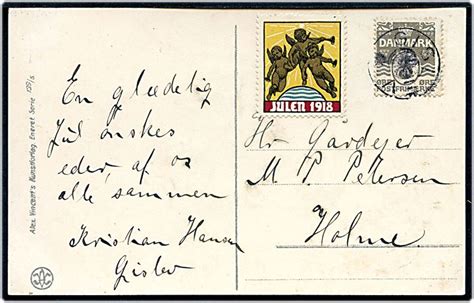 Alex. Vincent's Kunstforlag. Eneret Serie 125/5
En glædelig
Jul ønskes
eder, af os
alle sammen
Kristian Hansen
Gislev
JULEN 1918
DANMARK
ØRE ØRE
POSTFRIMÆRKE
Hr Gårdejer
M P Petersen
Holme